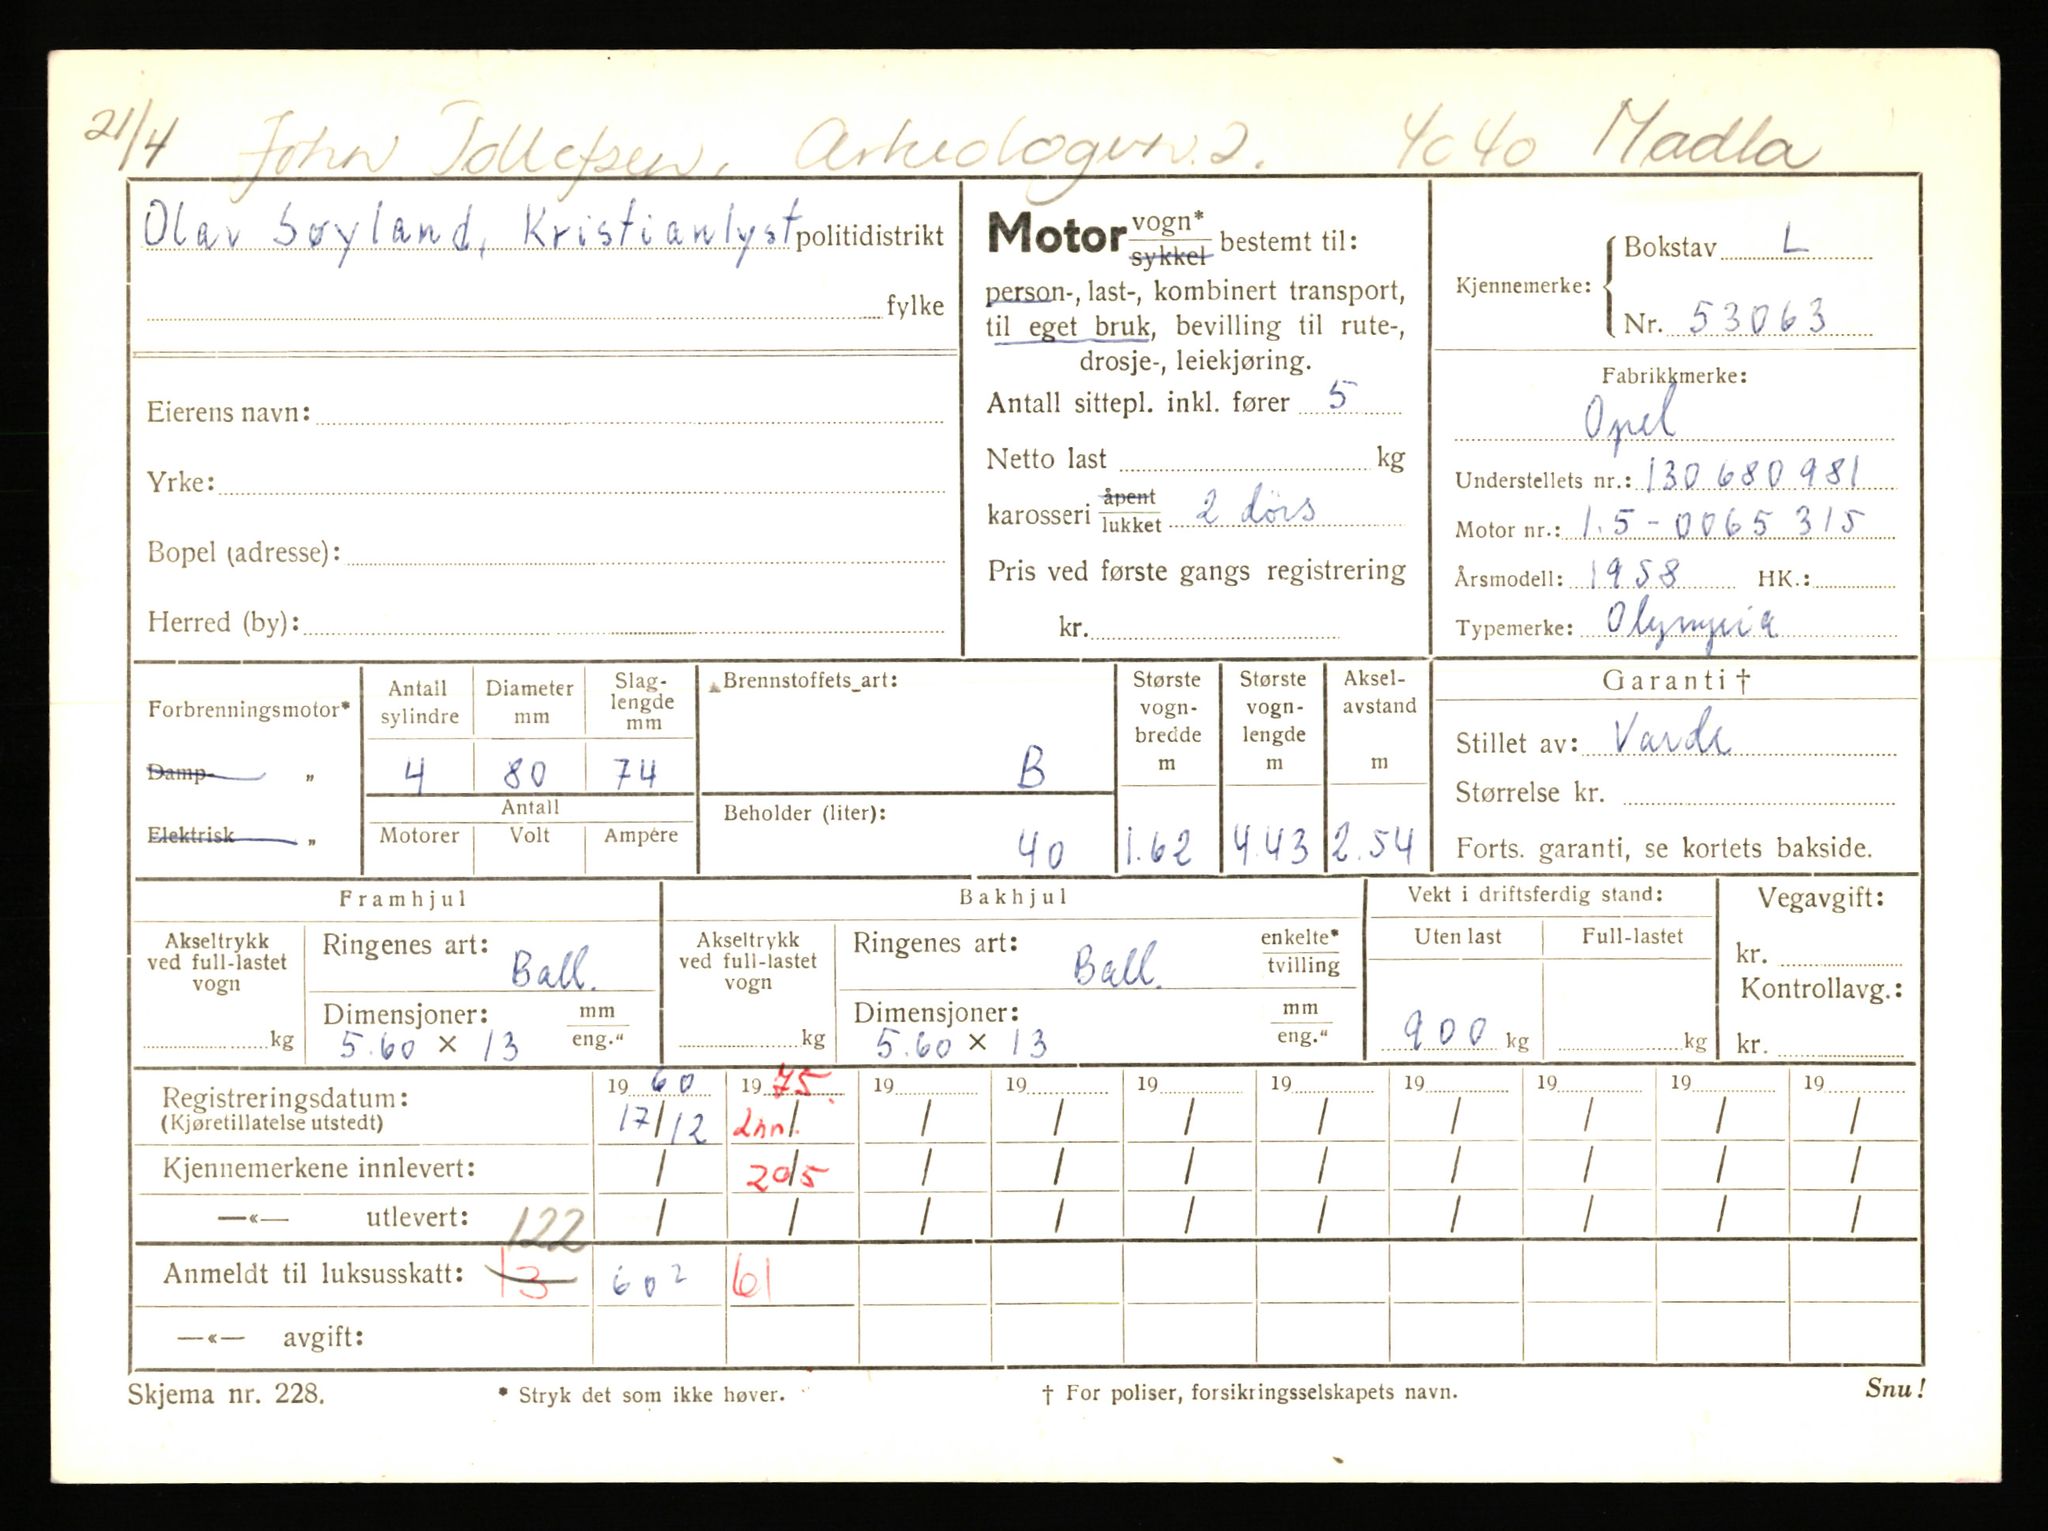 21/4 John Tollefsen, Arkeologvn. 2. 4040 Madla
Olav Søyland, Kristianlyst politidistrikt
fylke
Eierens navn:
Yrke:
Bopel (adresse):
Herred (by):
Motor vogn* sykkel bestemt til:
person-, last-, kombinert transport,
til eget bruk, bevilling til rute-,
drosje-, leiekjøring.
Antall sittepl. inkl. fører 5
Netto last kg
karosseri åpent lukket 2 dørs
Pris ved første gangs registrering
kr.
Kjennemerke: Bokstav L
Nr. 53063
Fabrikkmerke:
Opel
Understellets nr.: 130680981
Motor nr.: 1.5-0065315
Årsmodell: 1958 HK.:
Typemerke: Olympia
Forbrenningsmotor*
Damp- „
Elektrisk „
Antall sylindre
Diameter mm
Slaglengde mm
4 80 74
Antall
Motorer Volt Ampère
Brennstoffets art:
B
Beholder (liter):
40
Største vognbredde m
1.62
Største vognlengde m
4.43
Akselavstand m
2.54
Garanti †
Stillet av: Varde
Størrelse kr.
Forts. garanti, se kortets bakside.
Framhjul
Akseltrykk ved full-lastet vogn
kg
Ringenes art: Ball.
Dimensjoner: mm eng."
5.60 × 13
Bakhjul
Akseltrykk ved full-lastet vogn
kg
Ringenes art: Ball. enkelte* tvilling
Dimensjoner: mm eng."
5.60 × 13
Vekt i driftsferdig stand:
Uten last Full-lastet
900 kg kg
Vegavgift:
kr.
Kontrollavg.:
kr.
Registreringsdatum: 19 60 19 75. 19 19 19 19 19 19 19 19
(Kjøretillatelse utstedt) 17/12 / / / / / / / / /
Kjennemerkene innlevert: / 20/5 / / / / / / / /
—«— utlevert: / / / / / / / / / /
122
Anmeldt til luksusskatt: 13 60² 61
—«— avgift:
Skjema nr. 228. * Stryk det som ikke høver. † For poliser, forsikringsselskapets navn. Snu!